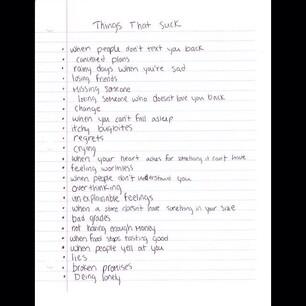 Things That Suck
• when people don't text you back
• canceled plans
• rainy days when you're sad
• losing friends
• Missing someone
• loving someone who doesn't love you back
• Change
• when you can't fall asleep
• itchy bugbites
• regrets
• crying
• when your heart aches for something it can't have
• feeling worthless
• when people don't understand you
• overthinking
• unexplainable feelings
• when a store doesn't have something in your size
• bad grades
• not having enough money
• when food stops tasting good
• when people yell at you
• lies
• broken promises
• being lonely